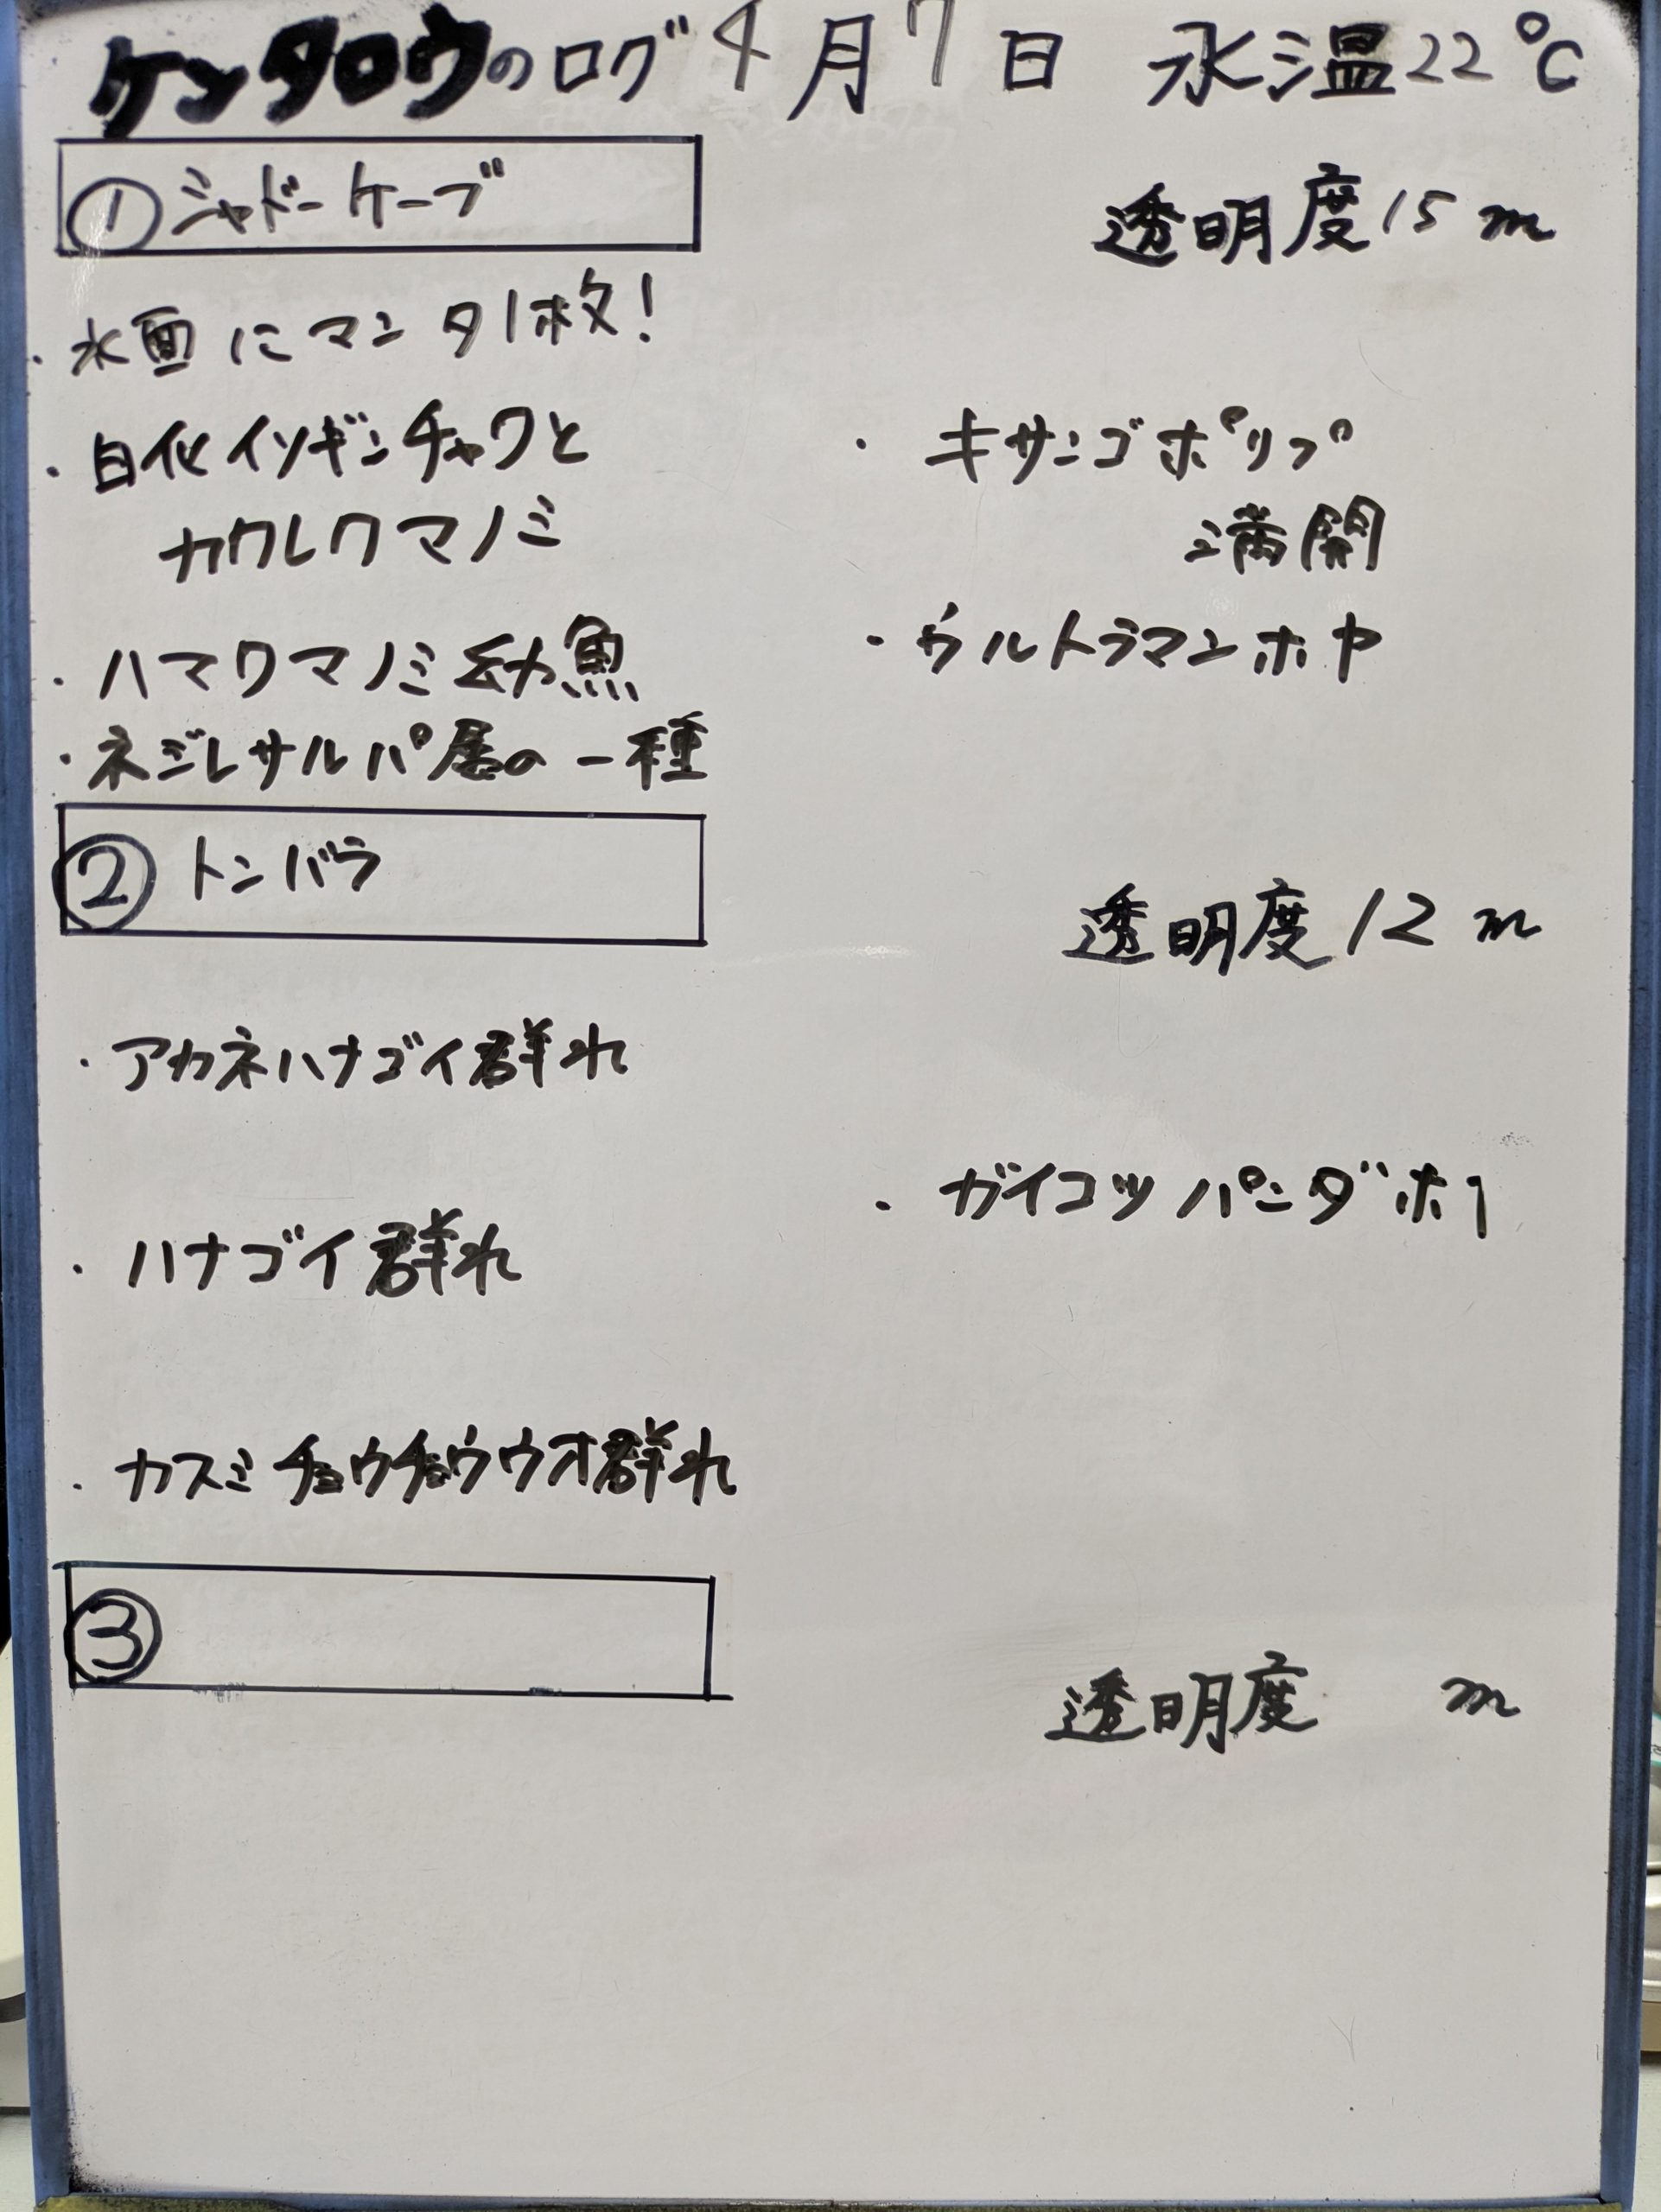 ケンタロウのログ 4月7日 水温22℃
①シャドーケーブ
透明度15m
・水面にマンタ1枚!
・白化イソギンチャクと
カクレクマノミ
・ハマクマノミ幼魚
・ネジレサルパ属の一種
・キサンゴポリプ
満開
・ウルトラマンホヤ
②トンバラ
透明度12m
・アカネハナゴイ群れ
・ハナゴイ群れ
・カスミチョウチョウウオ群れ
・ガイコツパンダホヤ
③
透明度 m